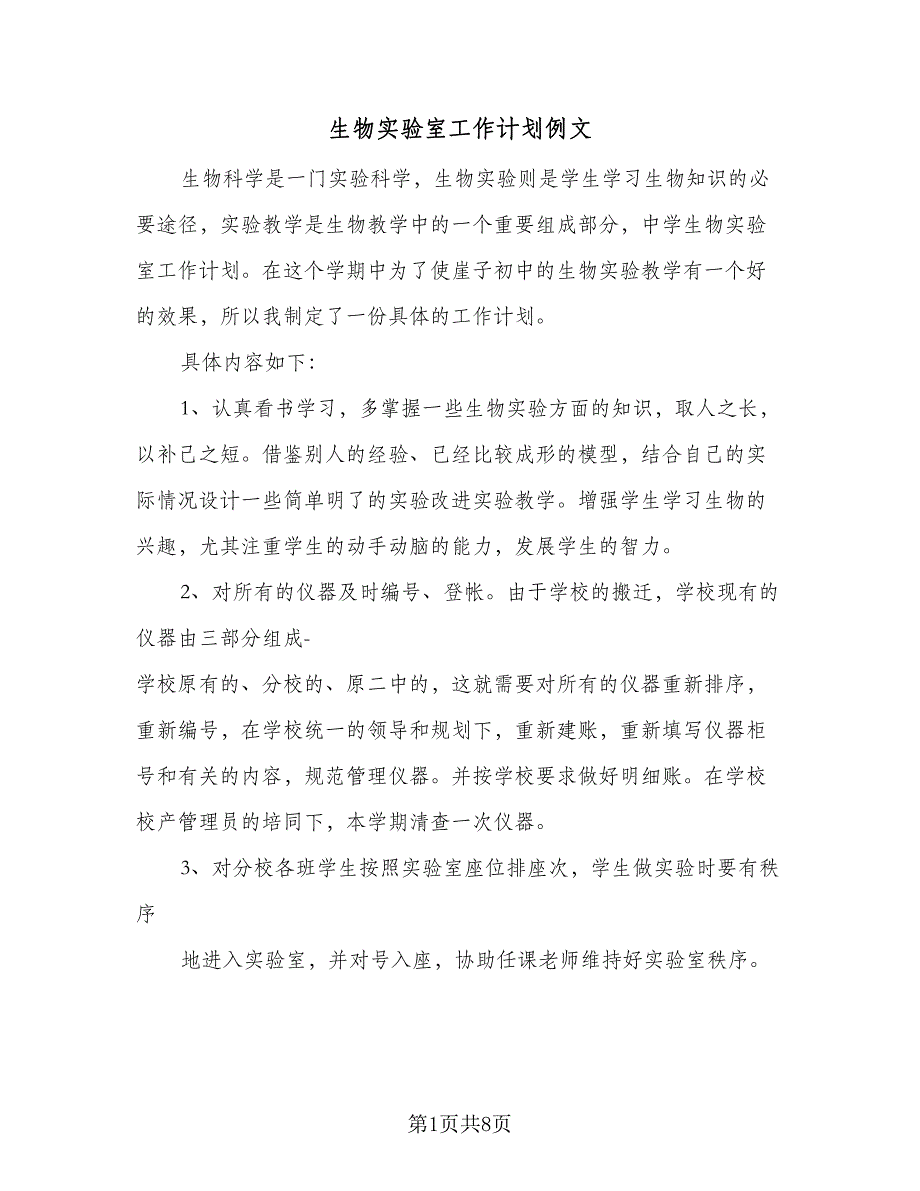 生物实验室工作计划例文
生物科学是一门实验科学，生物实验则是学生学习生物知识的必
要途径，实验教学是生物教学中的一个重要组成部分，中学生物实验
室工作计划。在这个学期中为了使崖子初中的生物实验教学有一个好
的效果，所以我制定了一份具体的工作计划。
具体内容如下：
1、认真看书学习，多掌握一些生物实验方面的知识，取人之长，
以补己之短。借鉴别人的经验、已经比较成形的模型，结合自己的实
际情况设计一些简单明了的实验改进实验教学。增强学生学习生物的
兴趣，尤其注重学生的动手动脑的能力，发展学生的智力。
2、对所有的仪器及时编号、登帐。由于学校的搬迁，学校现有的
仪器由三部分组成-
学校原有的、分校的、原二中的，这就需要对所有的仪器重新排序，
重新编号，在学校统一的领导和规划下，重新建账，重新填写仪器柜
号和有关的内容，规范管理仪器。并按学校要求做好明细账。在学校
校产管理员的培同下，本学期清查一次仪器。
3、对分校各班学生按照实验室座位排座次，学生做实验时要有秩
序
地进入实验室，并对号入座，协助任课老师维持好实验室秩序。
第1页共8页